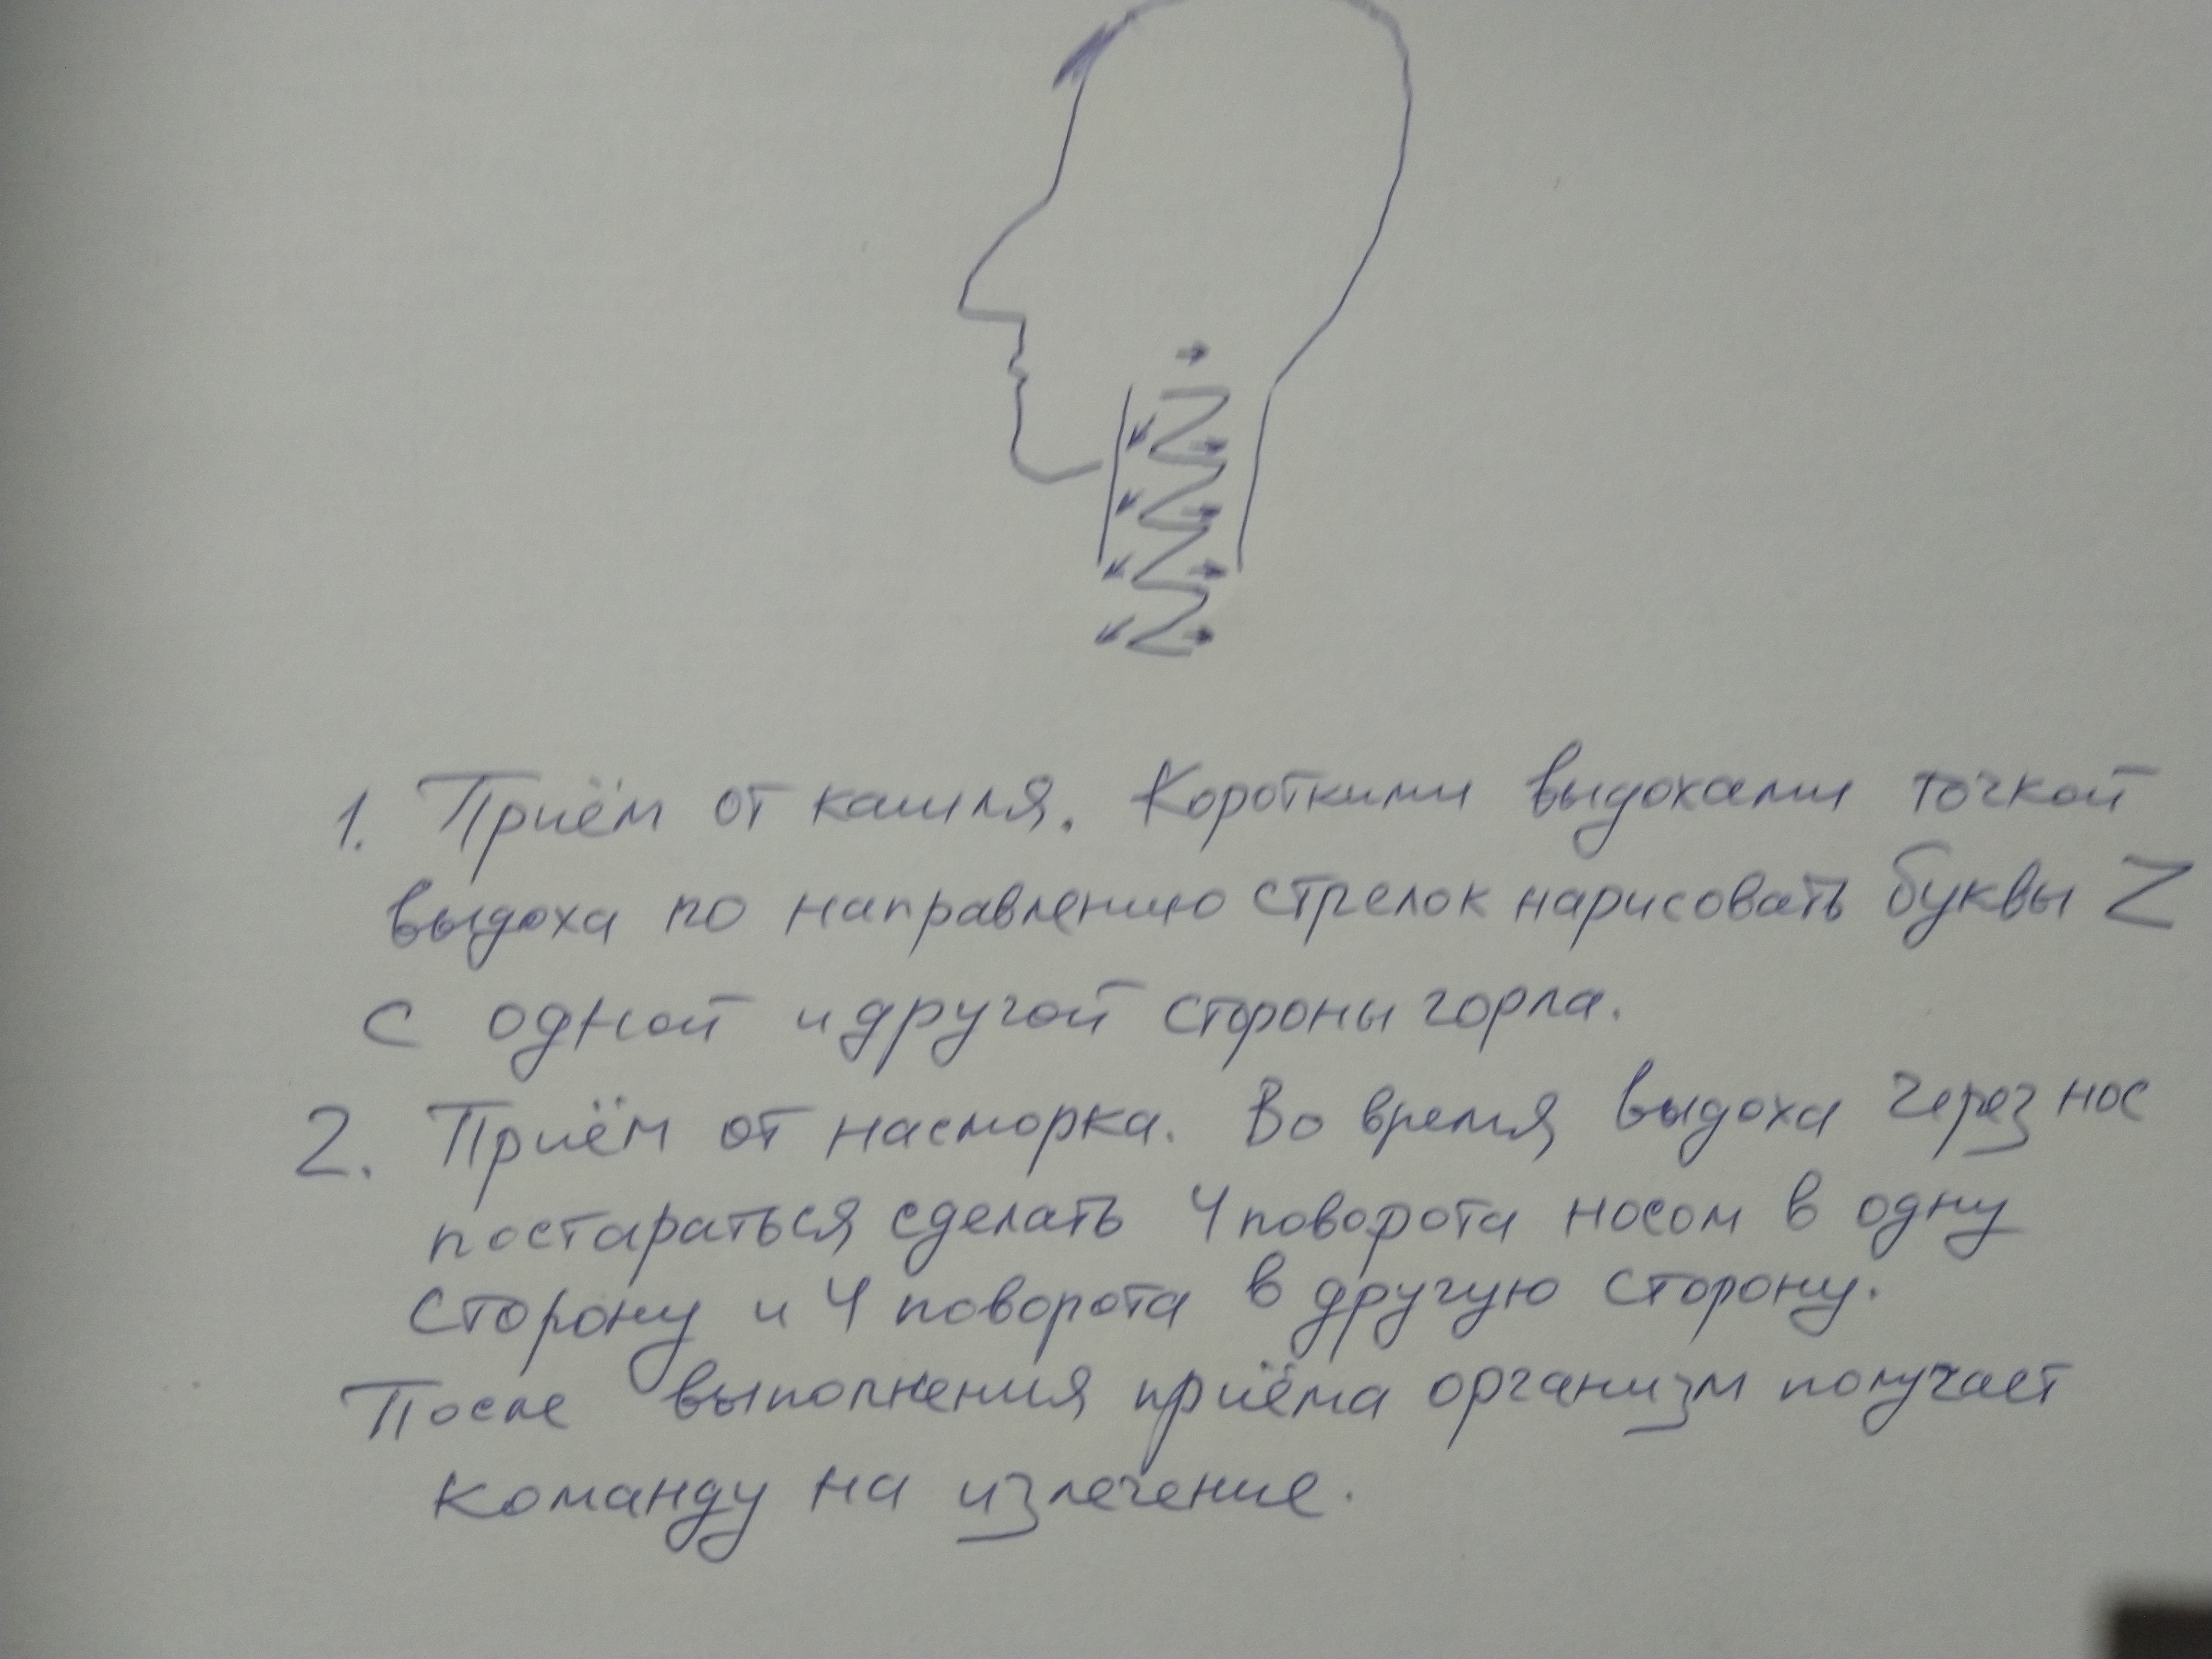 1. Приём от кашля. Короткими выдохами точкой
выдоха по направлению стрелок нарисовать буквы Z
с одной и другой стороны горла.
2. Приём от насморка. Во время выдоха через нос
постараться сделать 4 поворота носом в одну
сторону и 4 поворота в другую сторону.
После выполнения приёма организм получает
команду на излечение.